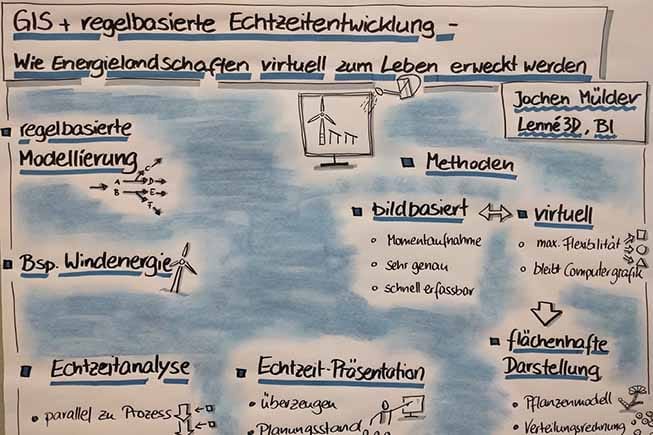 GIS + regelbasierte Echtzeitentwicklung -
Wie Energielandschaften virtuell zum Leben erweckt werden
Jochen Mülder
Lenné3D, Bl
regelbasierte
Modellierung
A
B
C
D
E
F
Methoden
bildbasiert
Momentaufnahme
sehr genau
schnell erfassbar
virtuell
max. Flexibilität
bleibt Computergrafik
Bsp. Windenergie
flächenhafte
Darstellung
Pflanzenmodell
Verteilungsrechnung
Echtzeitanalyse
parallel zu Prozess
Echtzeit-Präsentation
überzeugen
Planungsstand